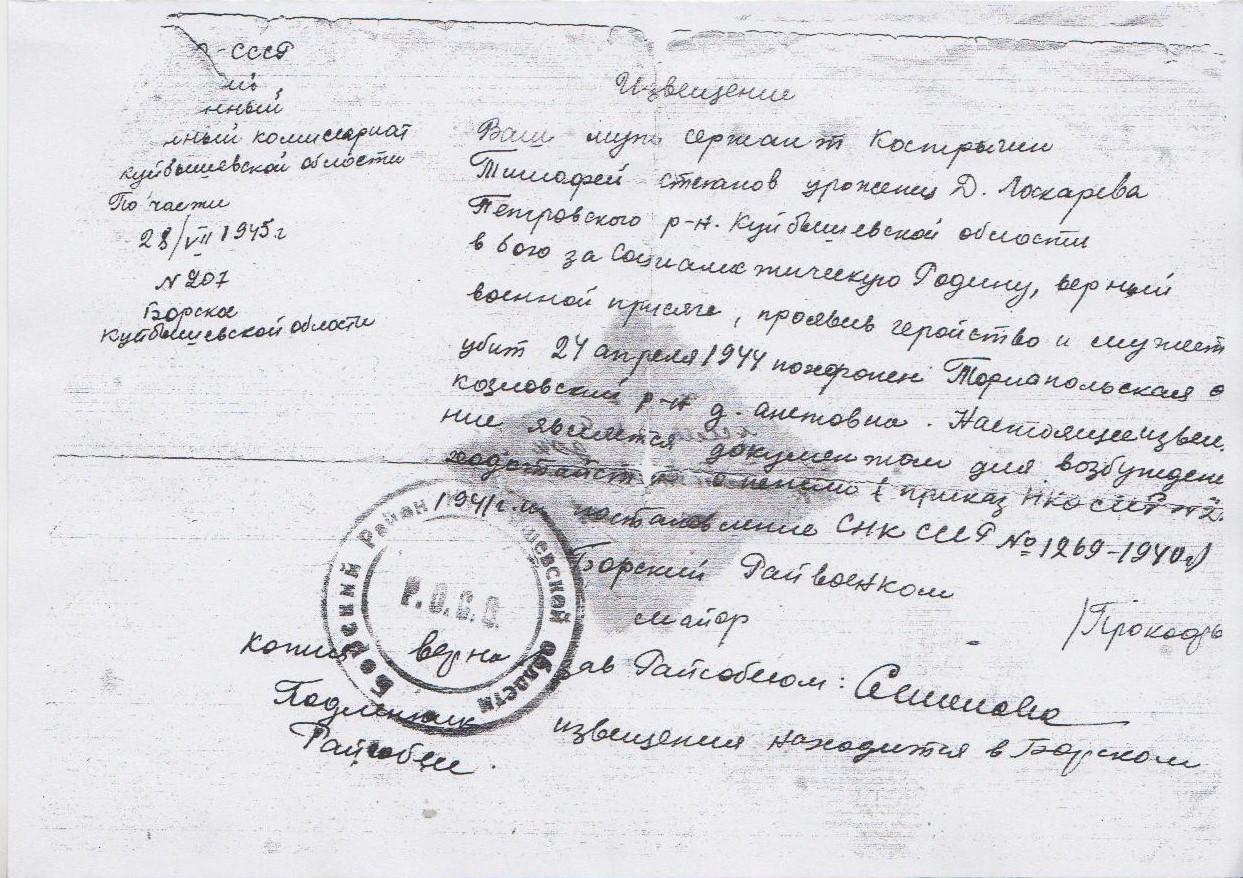 -СССР
нь
нный
нный комиссариат
Куйбышевской области
По части
28/VII 1945 г
N 207
Борска
Куйбышевской области
Извещение
Ваш муж сержант Кострычин
Тимофей степанов урожениц Д. Лоскарева
Петровского р-н. Куйбышевской области
в бою за социалистическую Родину, верный
военной присяге, проявив геройство и мужест
убит 24 апреля 1944 похоронен Торнапольская о
козловский р-н д. анстовна. Настоящее извещ
ние является документом для возбужден
ходатайст о пенсии (приказ НКО СССР N2
1941 г. и постановление СНК СССР № 1269-1940 г)
Борский Райвоенком
майор /Прокофь
копия верна зав Райсобесом: Семенова
Подленник извещения находится в Борском
Райсобеи.
Борский Район шевской области
Р.О.С.О.